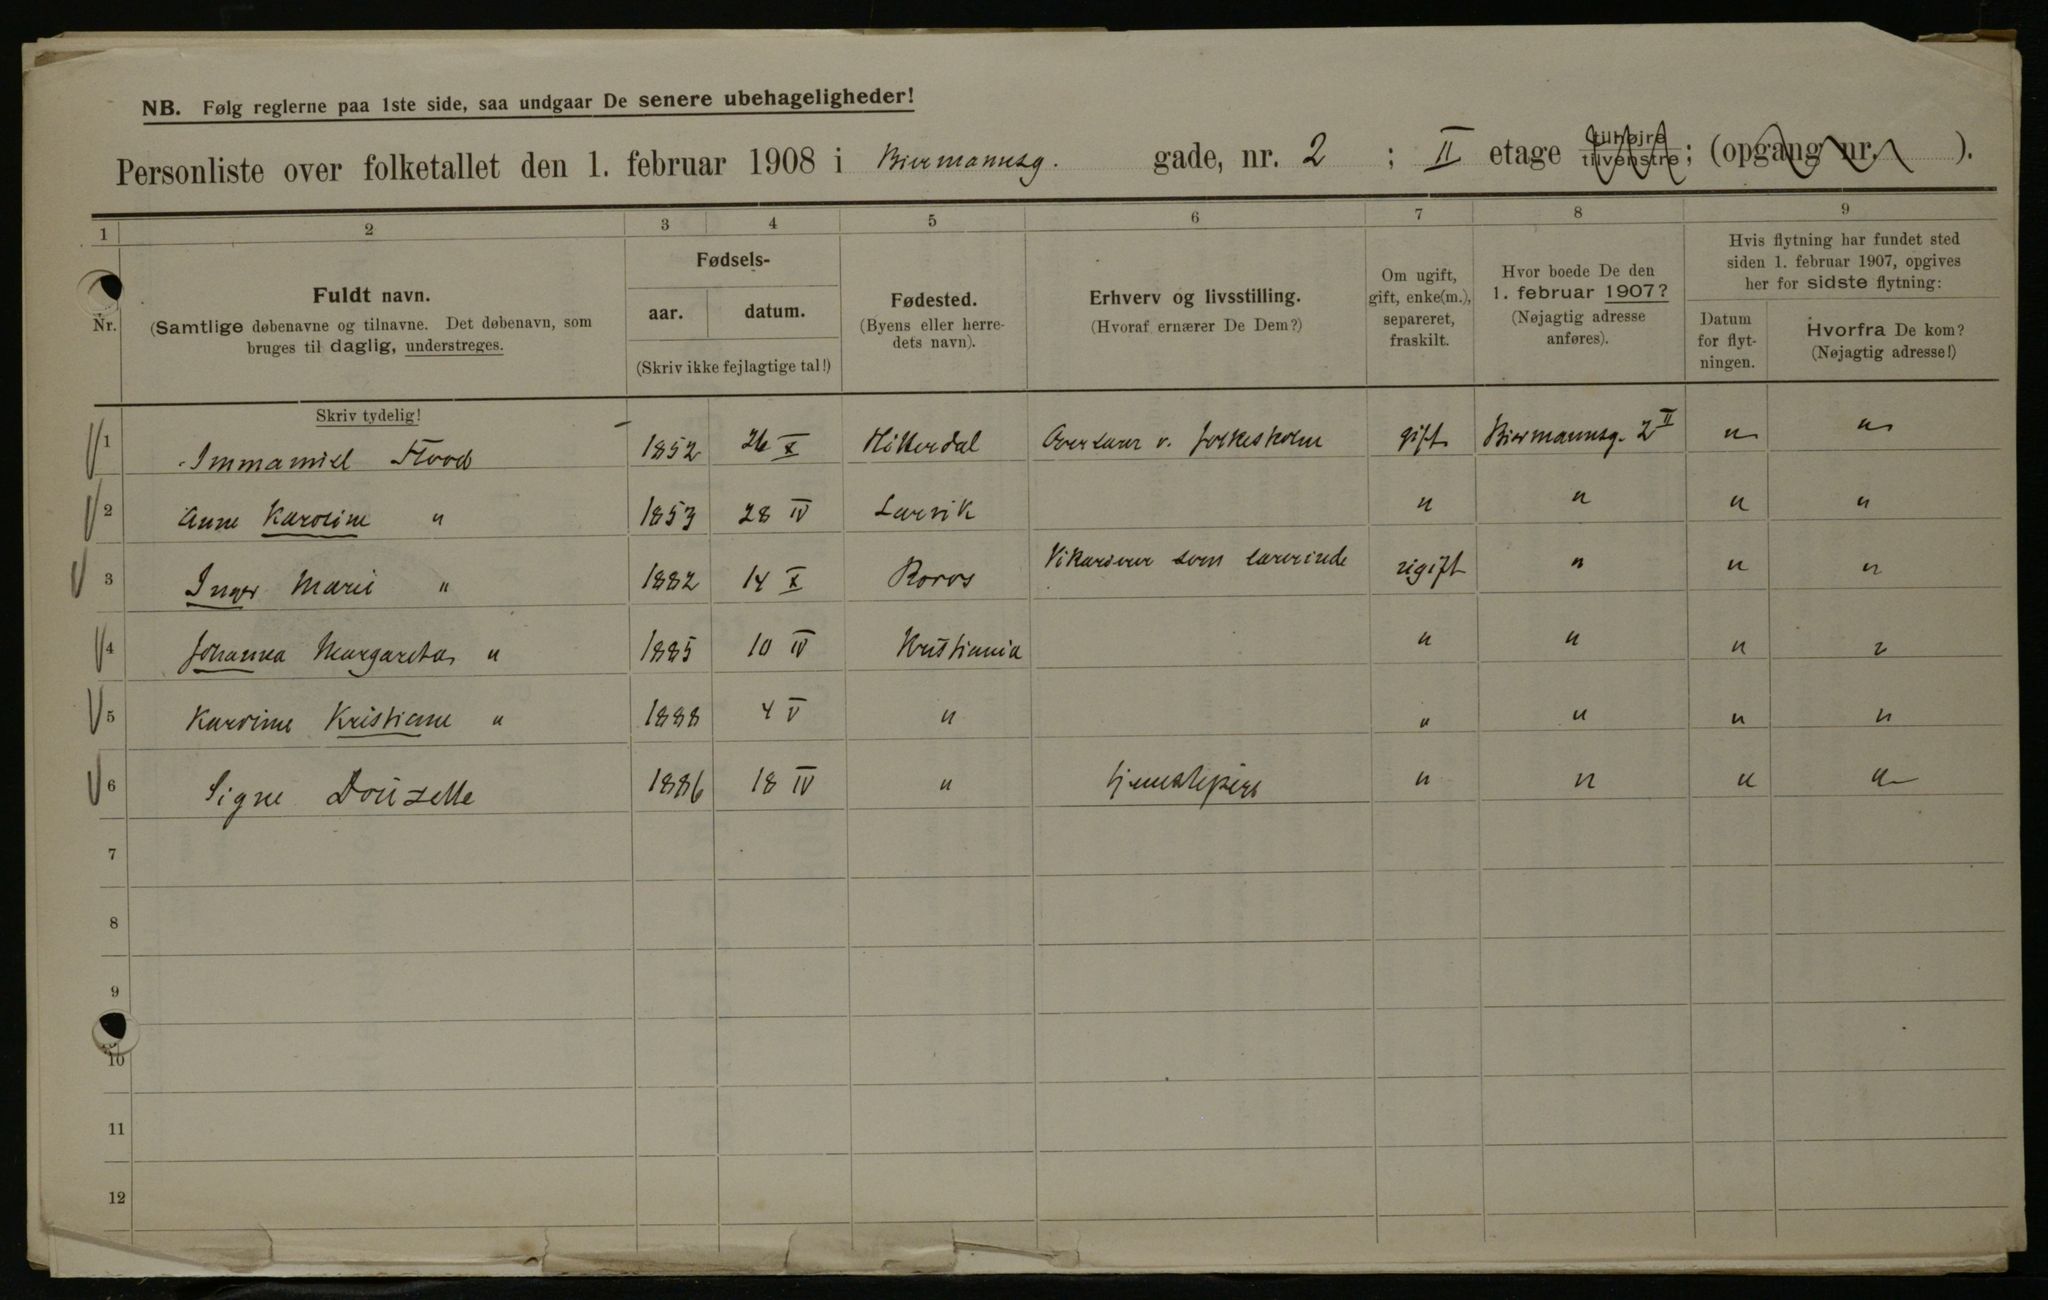 NB. Følg reglerne paa 1ste side, saa undgaar De senere ubehageligheder!
Personliste over folketallet den 1. februar 1908 i Biermannsg. gade, nr. 2 ; II etage tilhøjre tilvenstre; (opgang nr. ).
1 2 3 4 5 6 7 8 9
Nr.
Fuldt navn.
(Samtlige døbenavne og tilnavne. Det døbenavn, som
bruges til daglig, understreges.
Fødsels-
aar. datum.
(Skriv ikke fejlagtige tal!)
Fødested.
(Byens eller herre-
dets navn).
Erhverv og livsstilling.
(Hvoraf ernærer De Dem?)
Om ugift,
gift, enke(m.),
separeret,
fraskilt.
Hvor boede De den
1. februar 1907?
(Nøjagtig adresse
anføres).
Hvis flytning har fundet sted
siden 1. februar 1907, opgives
her for sidste flytning:
Datum
for flyt-
ningen.
Hvorfra De kom?
(Nøjagtig adresse!)
Skriv tydelig!
1 Immanuel Flood 1852 26 X Hitterdal Overlærer v. folkeskolen gift Biermannsg. 2 II " "
2 Anne Karoline " 1853 28 IV Larvik " " " "
3 Inger Marie " 1882 14 X Roros Vikarierer som lærerinde ugift " " "
4 Johanna Margareta " 1885 10 IV Kristiania " " " "
5 Karoline Kristiane " 1888 4 V " " " " "
6 Signe Douzette 1886 18 IV " tjenestepige " " " "
7
8
9
10
11
12